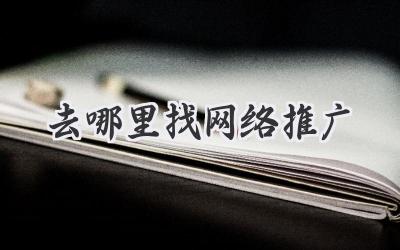 去哪里找网络推广